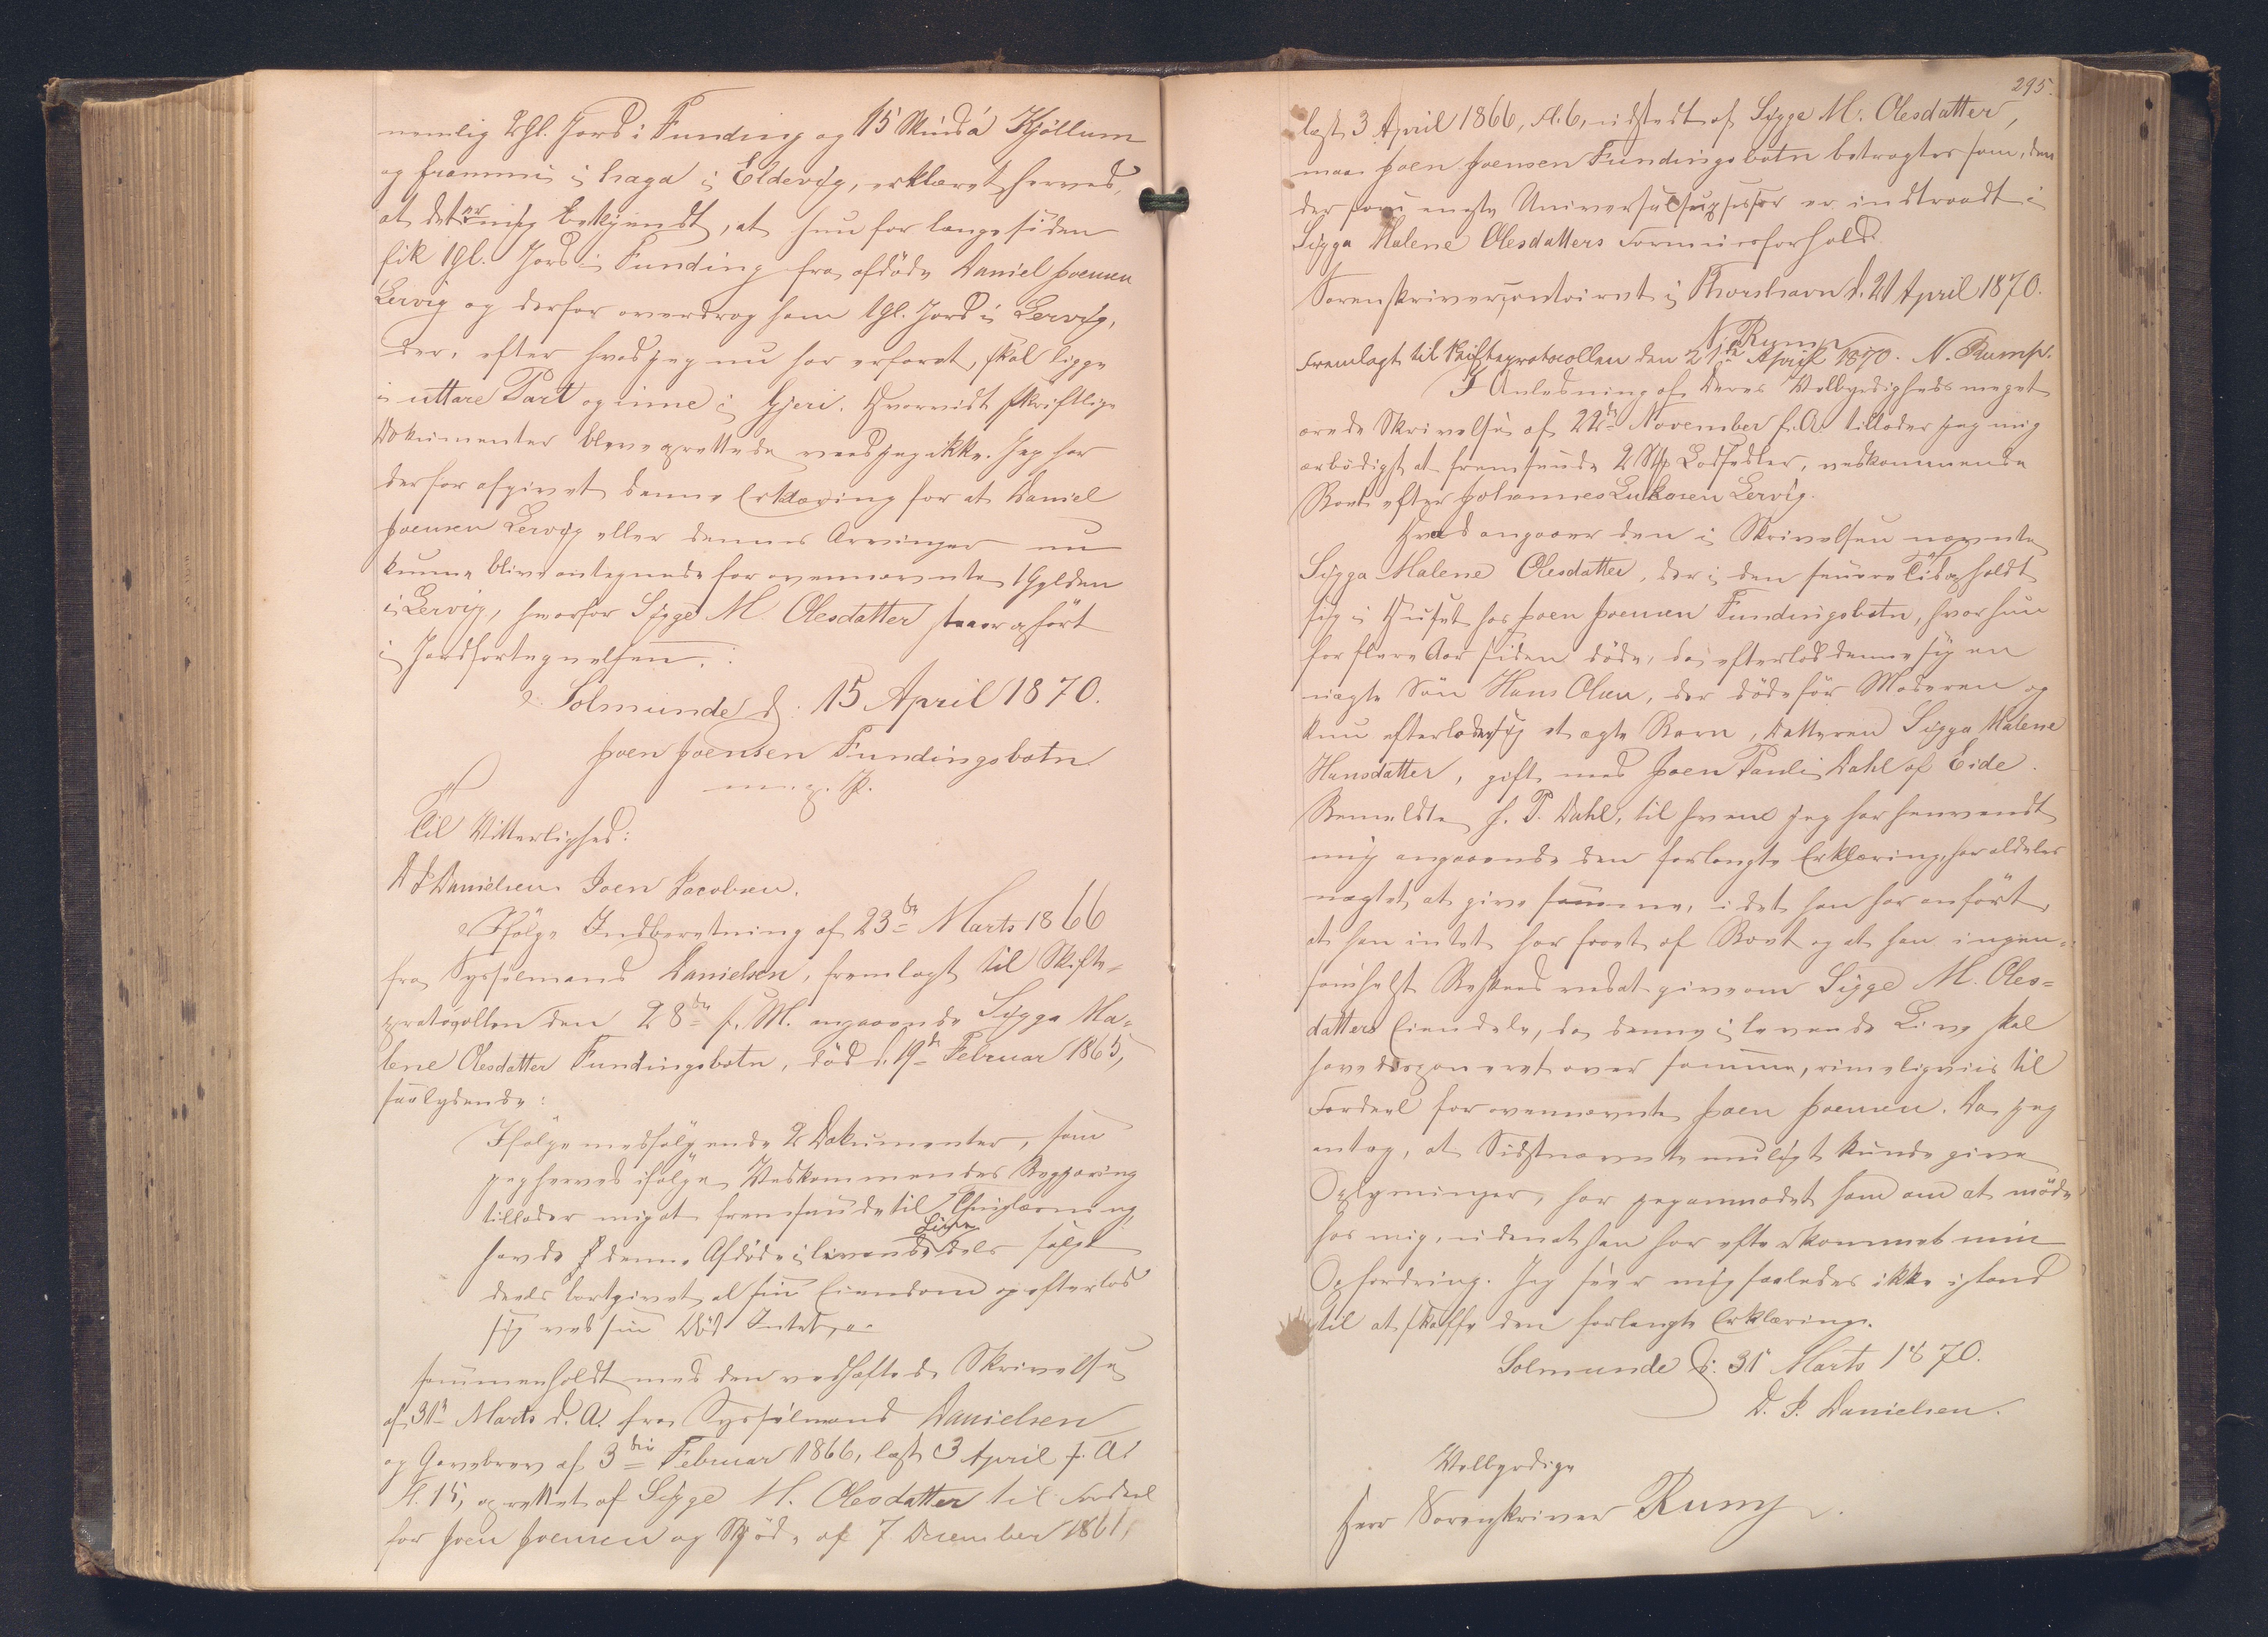 nemlig 2 Gl. Jord i Funding og 15 Skind á Kjöllum
og frammi i haga i Eldevig, erklæret herved,
at det er mig bekjendt, at hun for længe siden
fik 1 Gl. Jord i Funding fra afdöde Daniel Joensen
Lervig og derfor overdrog ham 1 Gl. Jord i Lervig,
der, efter hvad jeg nu har erfaret, skal ligge
i uttare Part og inne i Gjeri. Hvorvidt skriftlige
Dokumenter bleve oprettede veed jeg ikke. Jeg har
derfor afgivet denne Erklæring for at Daniel
Joensen Lervig eller dennes Arvinger nu
kunne blive antegnede for ovennævnte 1 Gylden
i Lervig, hvorfor Sigge M. Olesdatter staaer opfört
i Jordfortegnelsen.
Solmunde d. 15 April 1870.
Joen Joensen Fundingsbotn
m. p. P.
Til Vitterlighed:
D P Danielsen Joen Jacobsen.
Ifölge Indberetning af 23de Marts 1866
fra Sysselmand Danielsen, fremlagt til Skifte-
protocollen den 28de s. M. angaaende Sigga Ma-
lene Olesdatter Fundingsbotn, död d. 19de Februar 1865,
saalydende:
Ifölge medfölgende 2 Dokumenter, som
jeg herved ifölge Vedkommendes Begjæring
tillader mig at fremsende til Thinglæsning,
havde denne Afdöde i levende Live dels solgt
deels bortgivet al sin Eiendom og efterlod
sig ved sin Död Intet,
sammenholdt med den vedhæftede Skrivelse
af 31te Marts d. A. fra Sysselmand Danielsen
og Gavebrev af 3die Februar 1866, læst 3 April s. A.
A. 15, oprettet af Sigge M. Olesdatter til Fordeel
for Joen Joensen og Skjöde af 7 December 1861,
295.
læst 3 April 1866, A. 6, udstedt af Sigge M. Olesdatter,
maa Joen Joensen Fundingsbotn betragtes som den
der som eneste Universalsuccessor er indtraadt i
Sigga Malene Olesdatters Formuesforhold.
Sorenskrivercontoiret i Thorshavn d. 21 April 1870.
N. Rump
Fremlagt til Skifteprotocollen den 21de April 1870. N. Rump.
I Anledning af Deres Velbyrdigheds meget
ærede Skrivelse af 22de November f. A. tillader jeg mig
ærbödigst at fremsende 2 Stk Lodsedler, vedkommende
Boet efter Johannes Lukasen Lervig.
Hvad angaaer den i Skrivelsen nævnte
Sigga Malene Olesdatter, der i den senere Tid opholdt
sig i Huset hos Joen Joensen Fundingsbotn, hvor hun
for flere Aar siden döde, da efterlod denne sig en
uægte Sön Hans Olsen, der döde för Moderen og
kun efterlod sig et ægte Barn, Datteren Sigga Malene
Hansdatter, gift med Joen Pauli Dahl af Eide.
Bemeldte J. P. Dahl, til hvem jeg har henvendt
mig angaaende den forlangte Erklæring, har aldeles
nægtet at give samme, idet han har anfört,
at han intet har faaet af Boet og at han ingen-
somhelst Besked veed at give om Sigge M. Oles-
datters Eiendele, da denne i levende Live skal
have disponeret over samme, rimeligviis til
Fordeel for ovennævnte Joen Joensen. Da jeg
antog, at Sidstnævnte muligt kunde give
Oplysninger, har jeg anmodet ham om at möde
hos mig, uden at han har efterkommet min
Opfordring. Jeg seer mig saaledes ikke istand
til at skaffe den forlangte Erklæring.
Solmunde d. 31 Marts 1870.
D. P. Danielsen.
Velbyrdige
Herr Sorenskriver Rump.